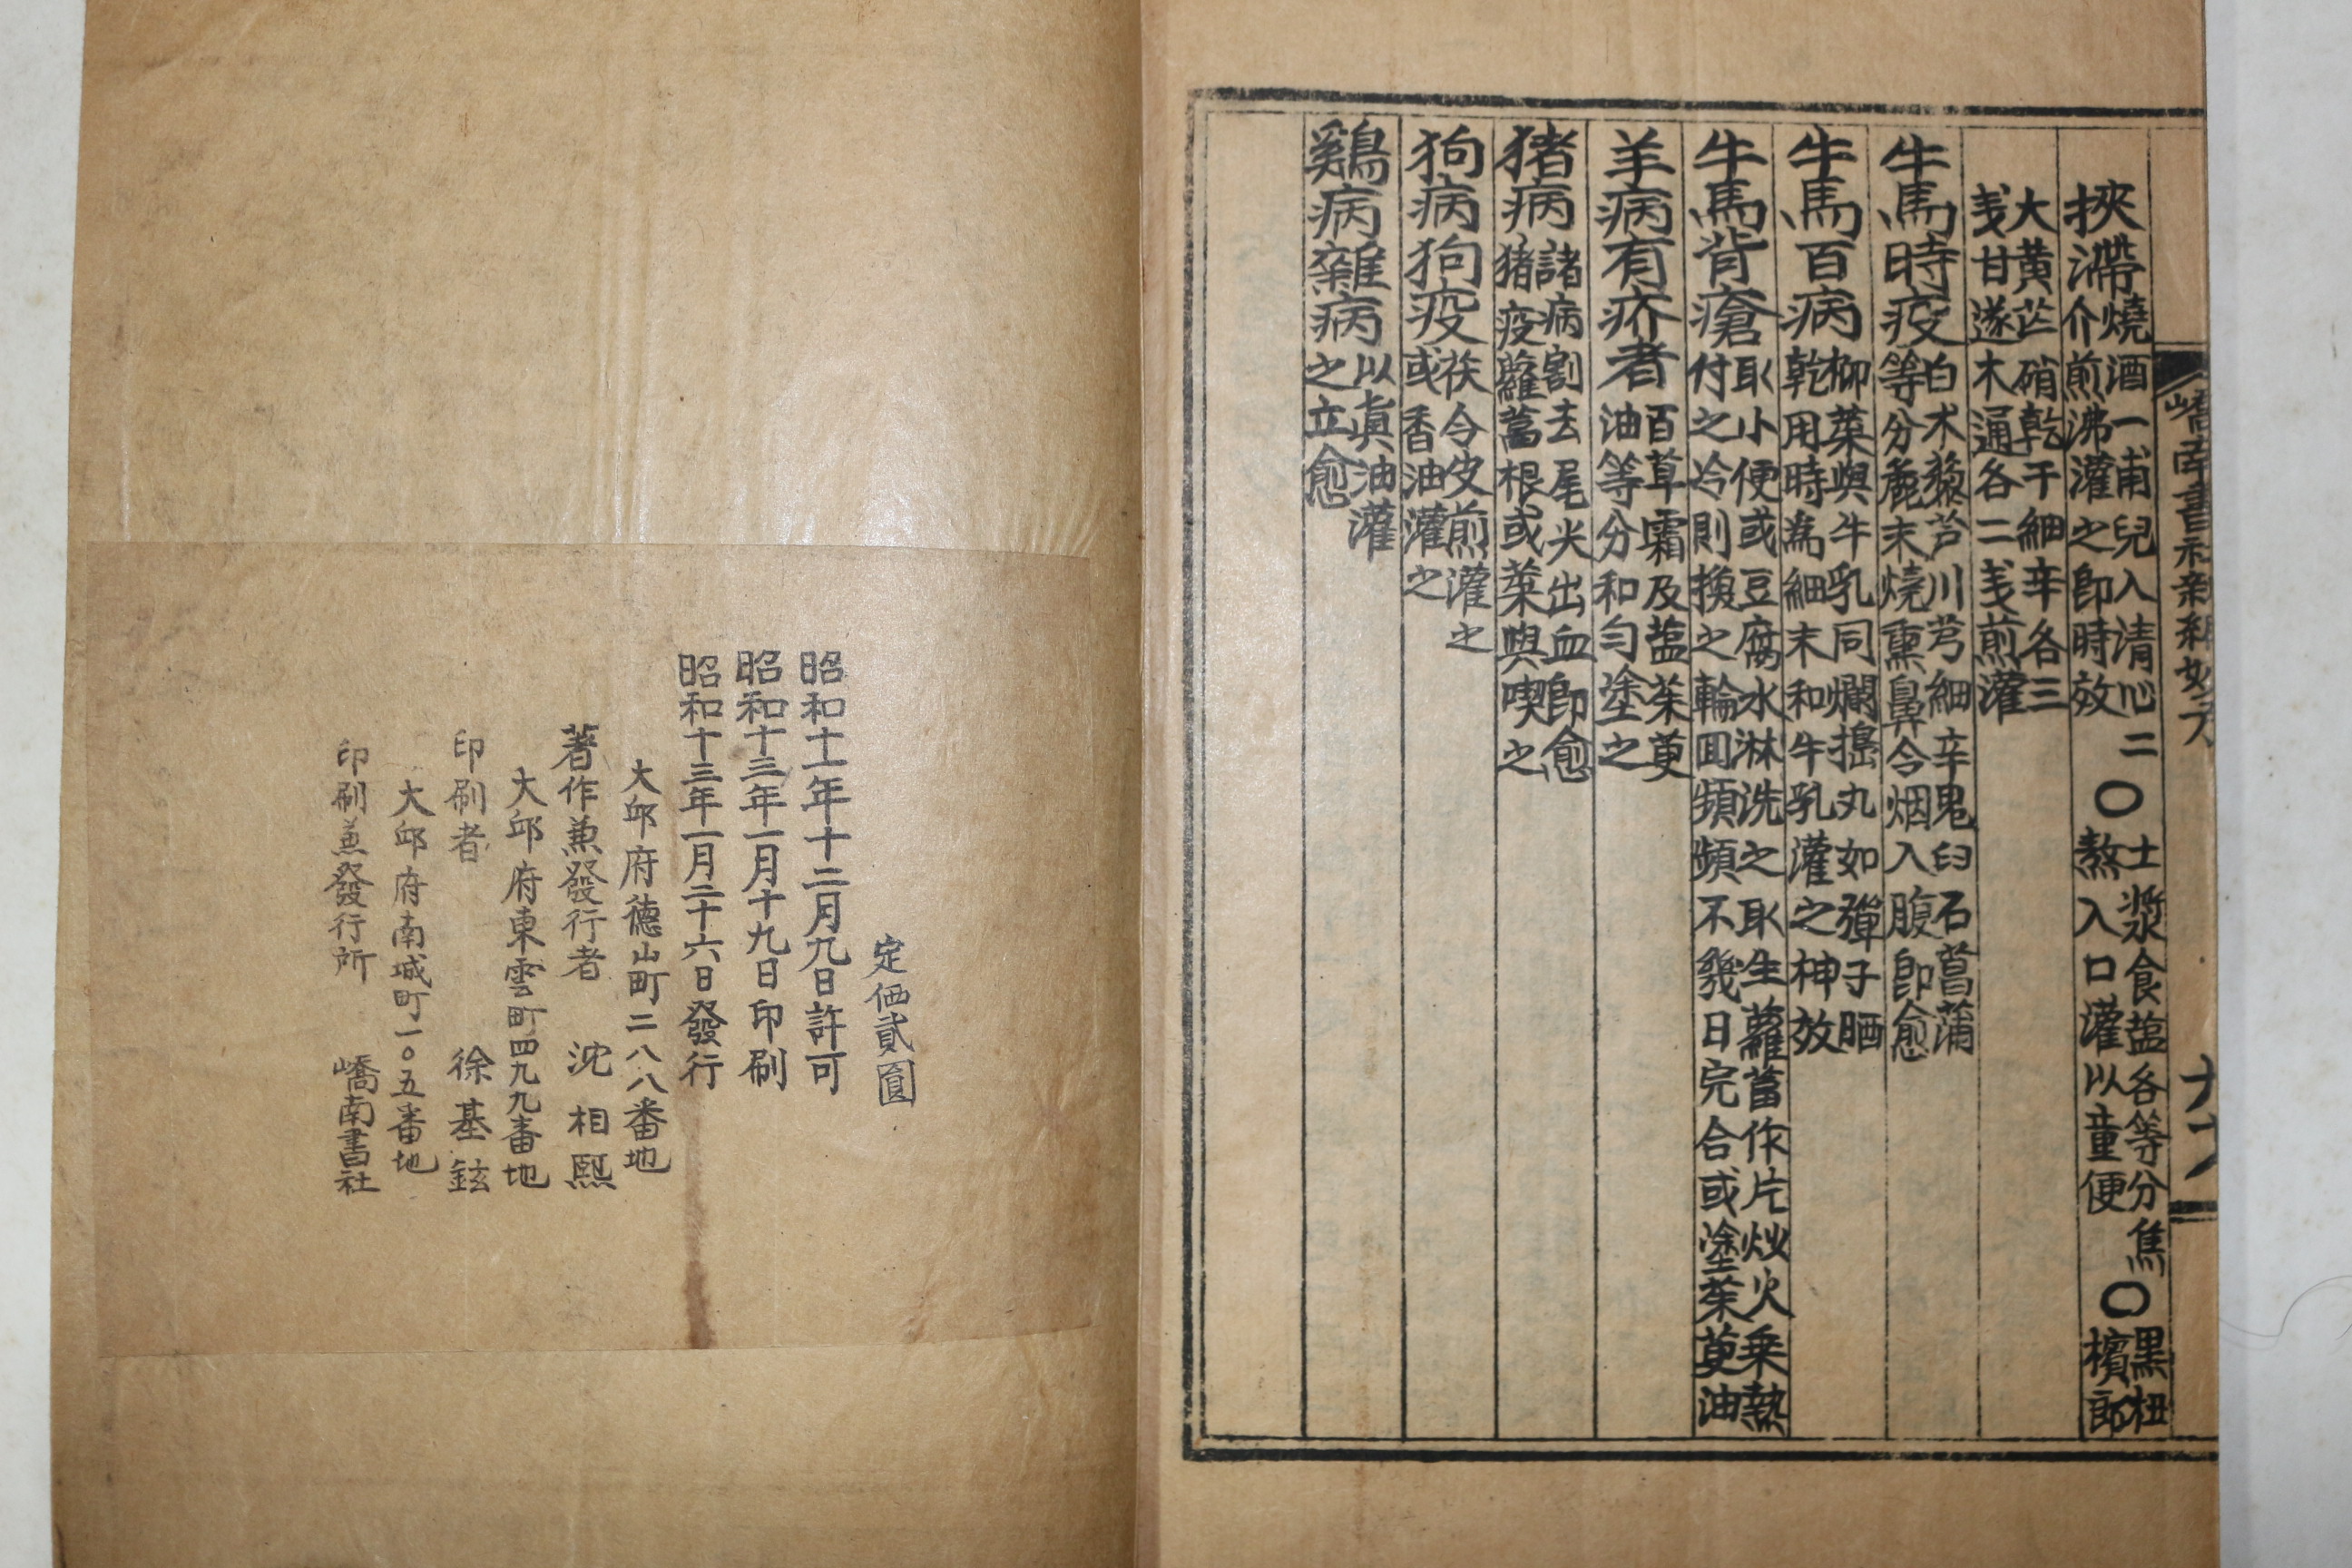 挾滯燒酒一甫兒入清心二
介煎沸灌之卽時效
〇土漿食盐各等分焦
熬入口灌以童便
〇黑杻
檳郎
大黃芒硝乾干細辛各三
戔甘遂木通各二戔煎灌
牛馬時疫白朮藜芦川芎細辛鬼臼石菖蒲
等分麁末燒熏鼻令烟入腹卽愈
牛馬百病柳葉與牛乳同爛搗丸如彈子晒
乾用時為細末和牛乳灌之神效
牛馬背瘡取小便或豆腐水淋洗之取生蘿葍作片炒火乗熱
付之冷則換之輪回頻頻不幾日完合或塗茱萸油
羊病有疥者百草霜及盐茱萸
油等分和勻塗之
猪病諸病割去尾尖出血卽愈
猪疫蘿葍根或葉與喫之
狗病狗疫茯令皮煎灌之
或香油灌之
鷄病雜病以眞油灌
之立愈
定価貳圓
昭和十二年十二月九日許可
昭和十三年一月十九日印刷
昭和十三年一月二十六日發行
大邱府德山町二八八番地
著作兼發行者 沈相熙
大邱府東雲町四九九番地
印刷者 徐基鉉
大邱府南城町一〇五番地
印刷兼發行所 嶠南書社